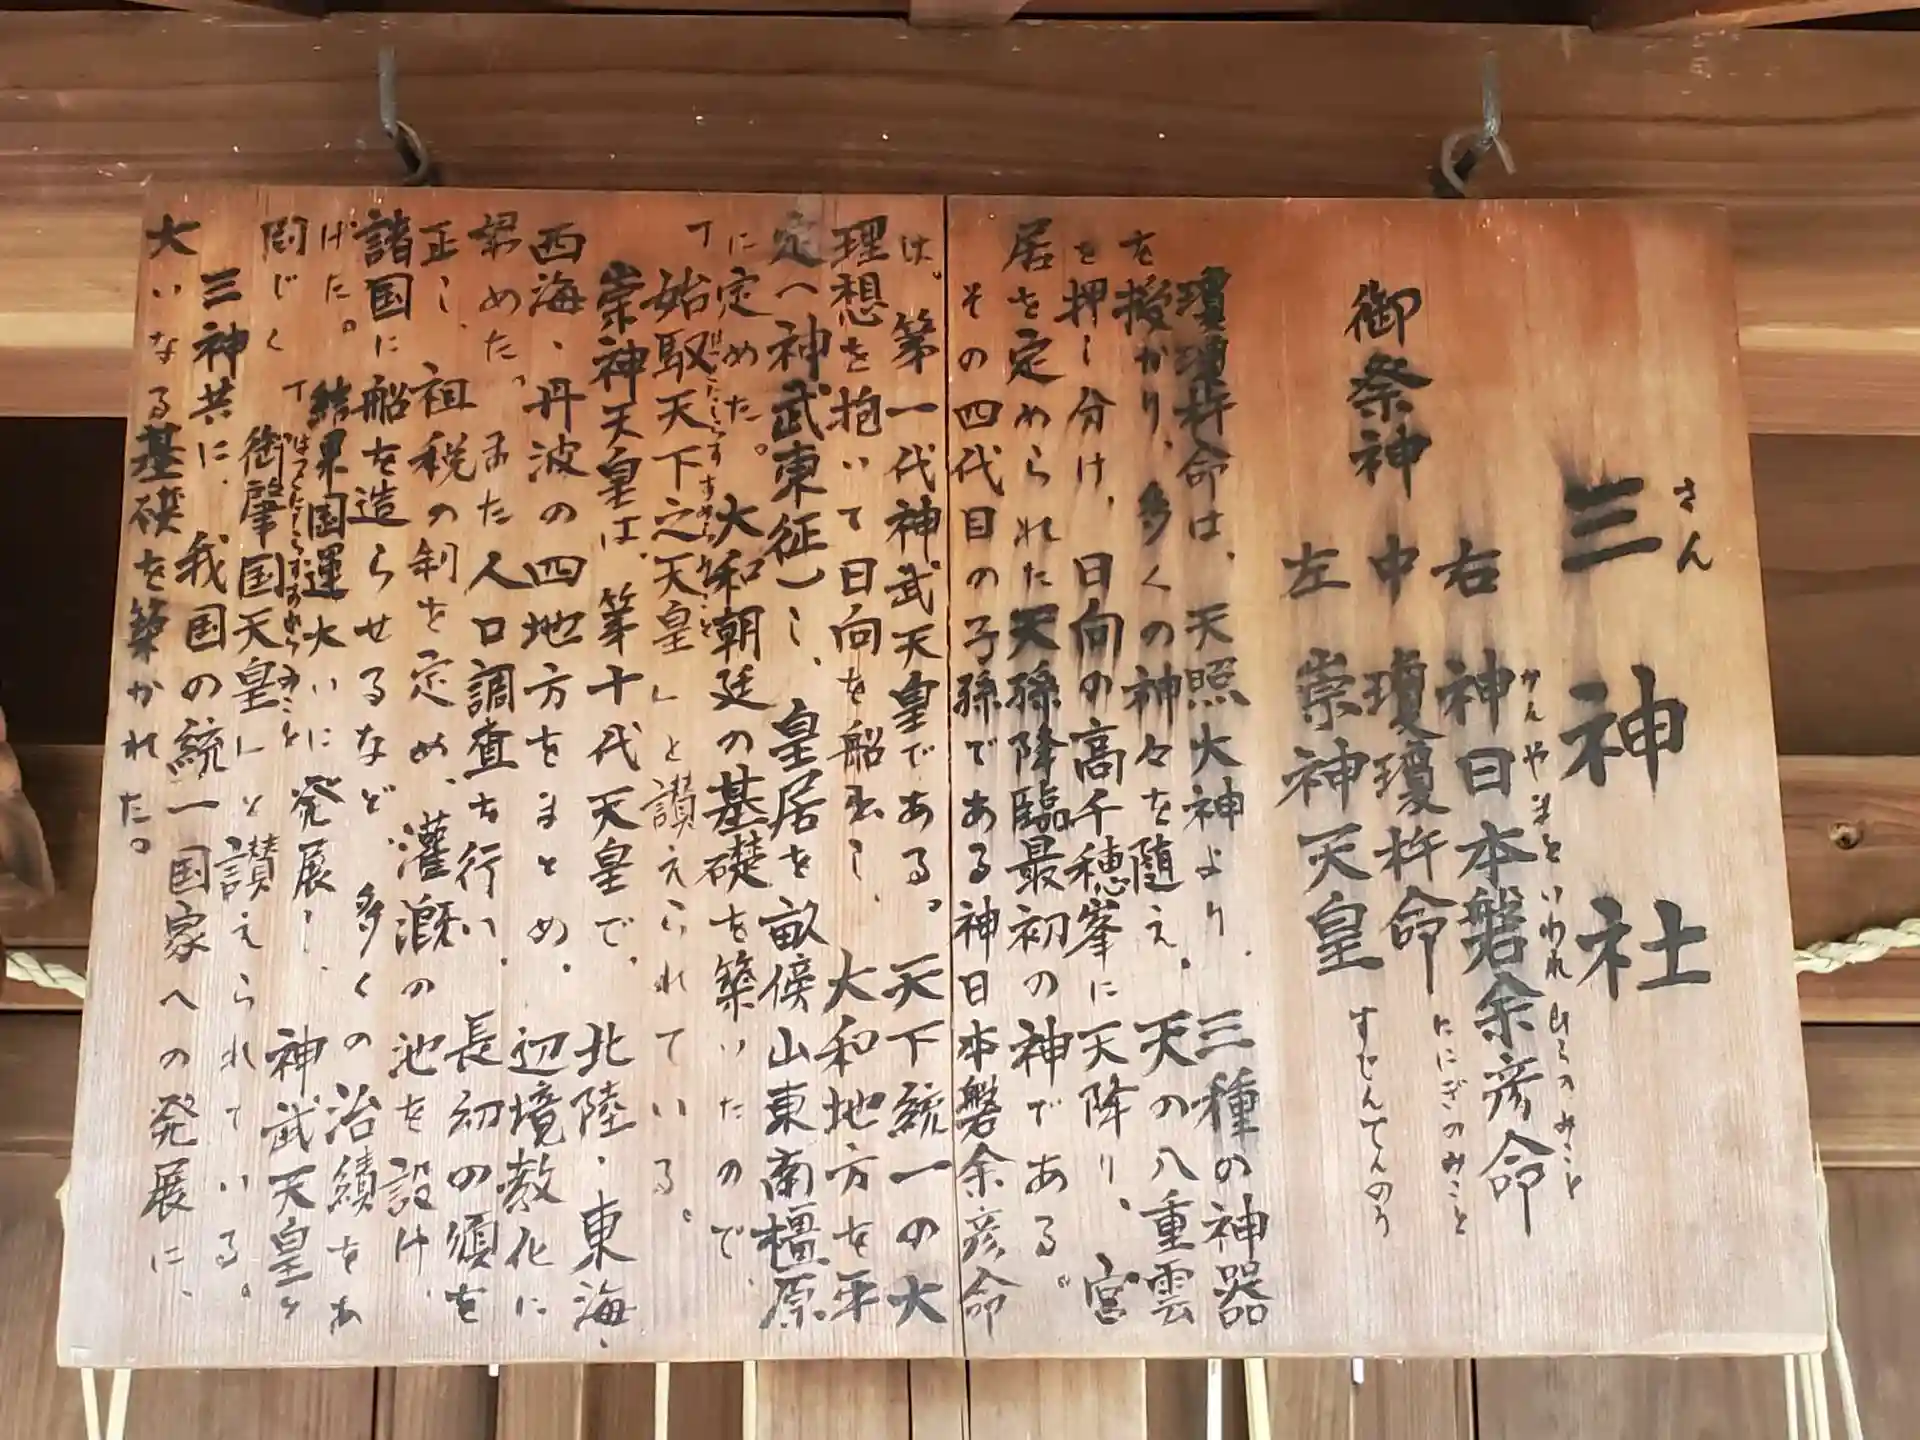 三神社
さん
御祭神
右 神日本磐余彦命
かんやまといわれひこのみこと
中 瓊瓊杵命
ににぎのみこと
左 崇神天皇
すじんてんのう
瓊瓊杵命は、天照大神より、三種の神器
を授かり、多くの神々を随え、天の八重雲
を押し分け、日向の高千穂峯に天降り、宮
居を定められた天孫降臨最初の神である。
その四代目の子孫である神日本磐余彦命
は。第一代神武天皇である。天下統一の大
理想を抱いて日向を船出し、大和地方を平
定へ神武東征)し、皇居を畝傍山東南橿原
に定めた。大和朝廷の基礎を築いたので、
「始馭天下之天皇」と讃えられている。
はつくにしらすすめらみこと
崇神天皇は、第十代天皇で、北陸、東海、
西海、丹波の四地方をまとめ、辺境教化に
努めた。また人口調査を行い、長幼の順を
正し、祖税の制を定め、灌漑の池を設け、
諸国に船を造らせるなど、多くの治績をあ
げた。結果国運大いに発展し、神武天皇と
同じく「御肇国天皇」と讃えられている。
はつくにしらすすめらみこと
三神共に、我国の統一国家への発展に、
大いなる基礎を築かれた。